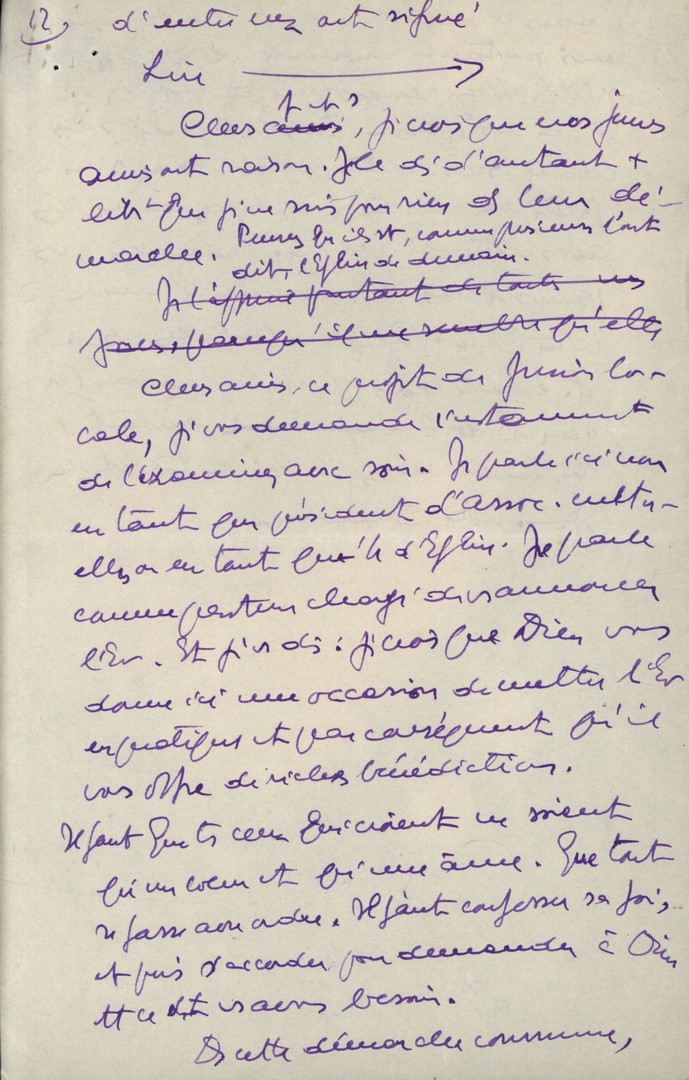 12) d'entre vous ont signé
Lire
Chers amis, f. et s., je crois que nos jeunes
amis ont raison. Je le dis d'autant +
libt que je ne suis pour rien ds leur dé-
marche. Pensez qu'ils st, comme plusieurs l'ont
dit, l'Eglise de demain.
Je l'appuie pourtant de toutes mes
forces, parce qu'il me semble qu'elle
Chers amis, ce projet de fusion lo-
cale, je vs demande instamment
de l'examiner avec soin. Je parle ici non
en tant que président d'assoc. cultu-
elles ou en tant qu' d'Eglise. Je parle
comme pasteur chargé de vs annoncer
l'Ev. Et je vs dis : je crois que Dieu vous
donne ici une occasion de mettre l'Ev
en pratique et par conséquent qu'il
vous offre de riches bénédictions.
Il faut que ts ceux qui croient ne soient
qu'un coeur et qu'une âme. Que tout
se fasse avec ordre. Il faut confesser sa foi,
et puis s'accorder pour demander à Dieu
tt ce dt vs avons besoin.
Ds cette démarche commune,